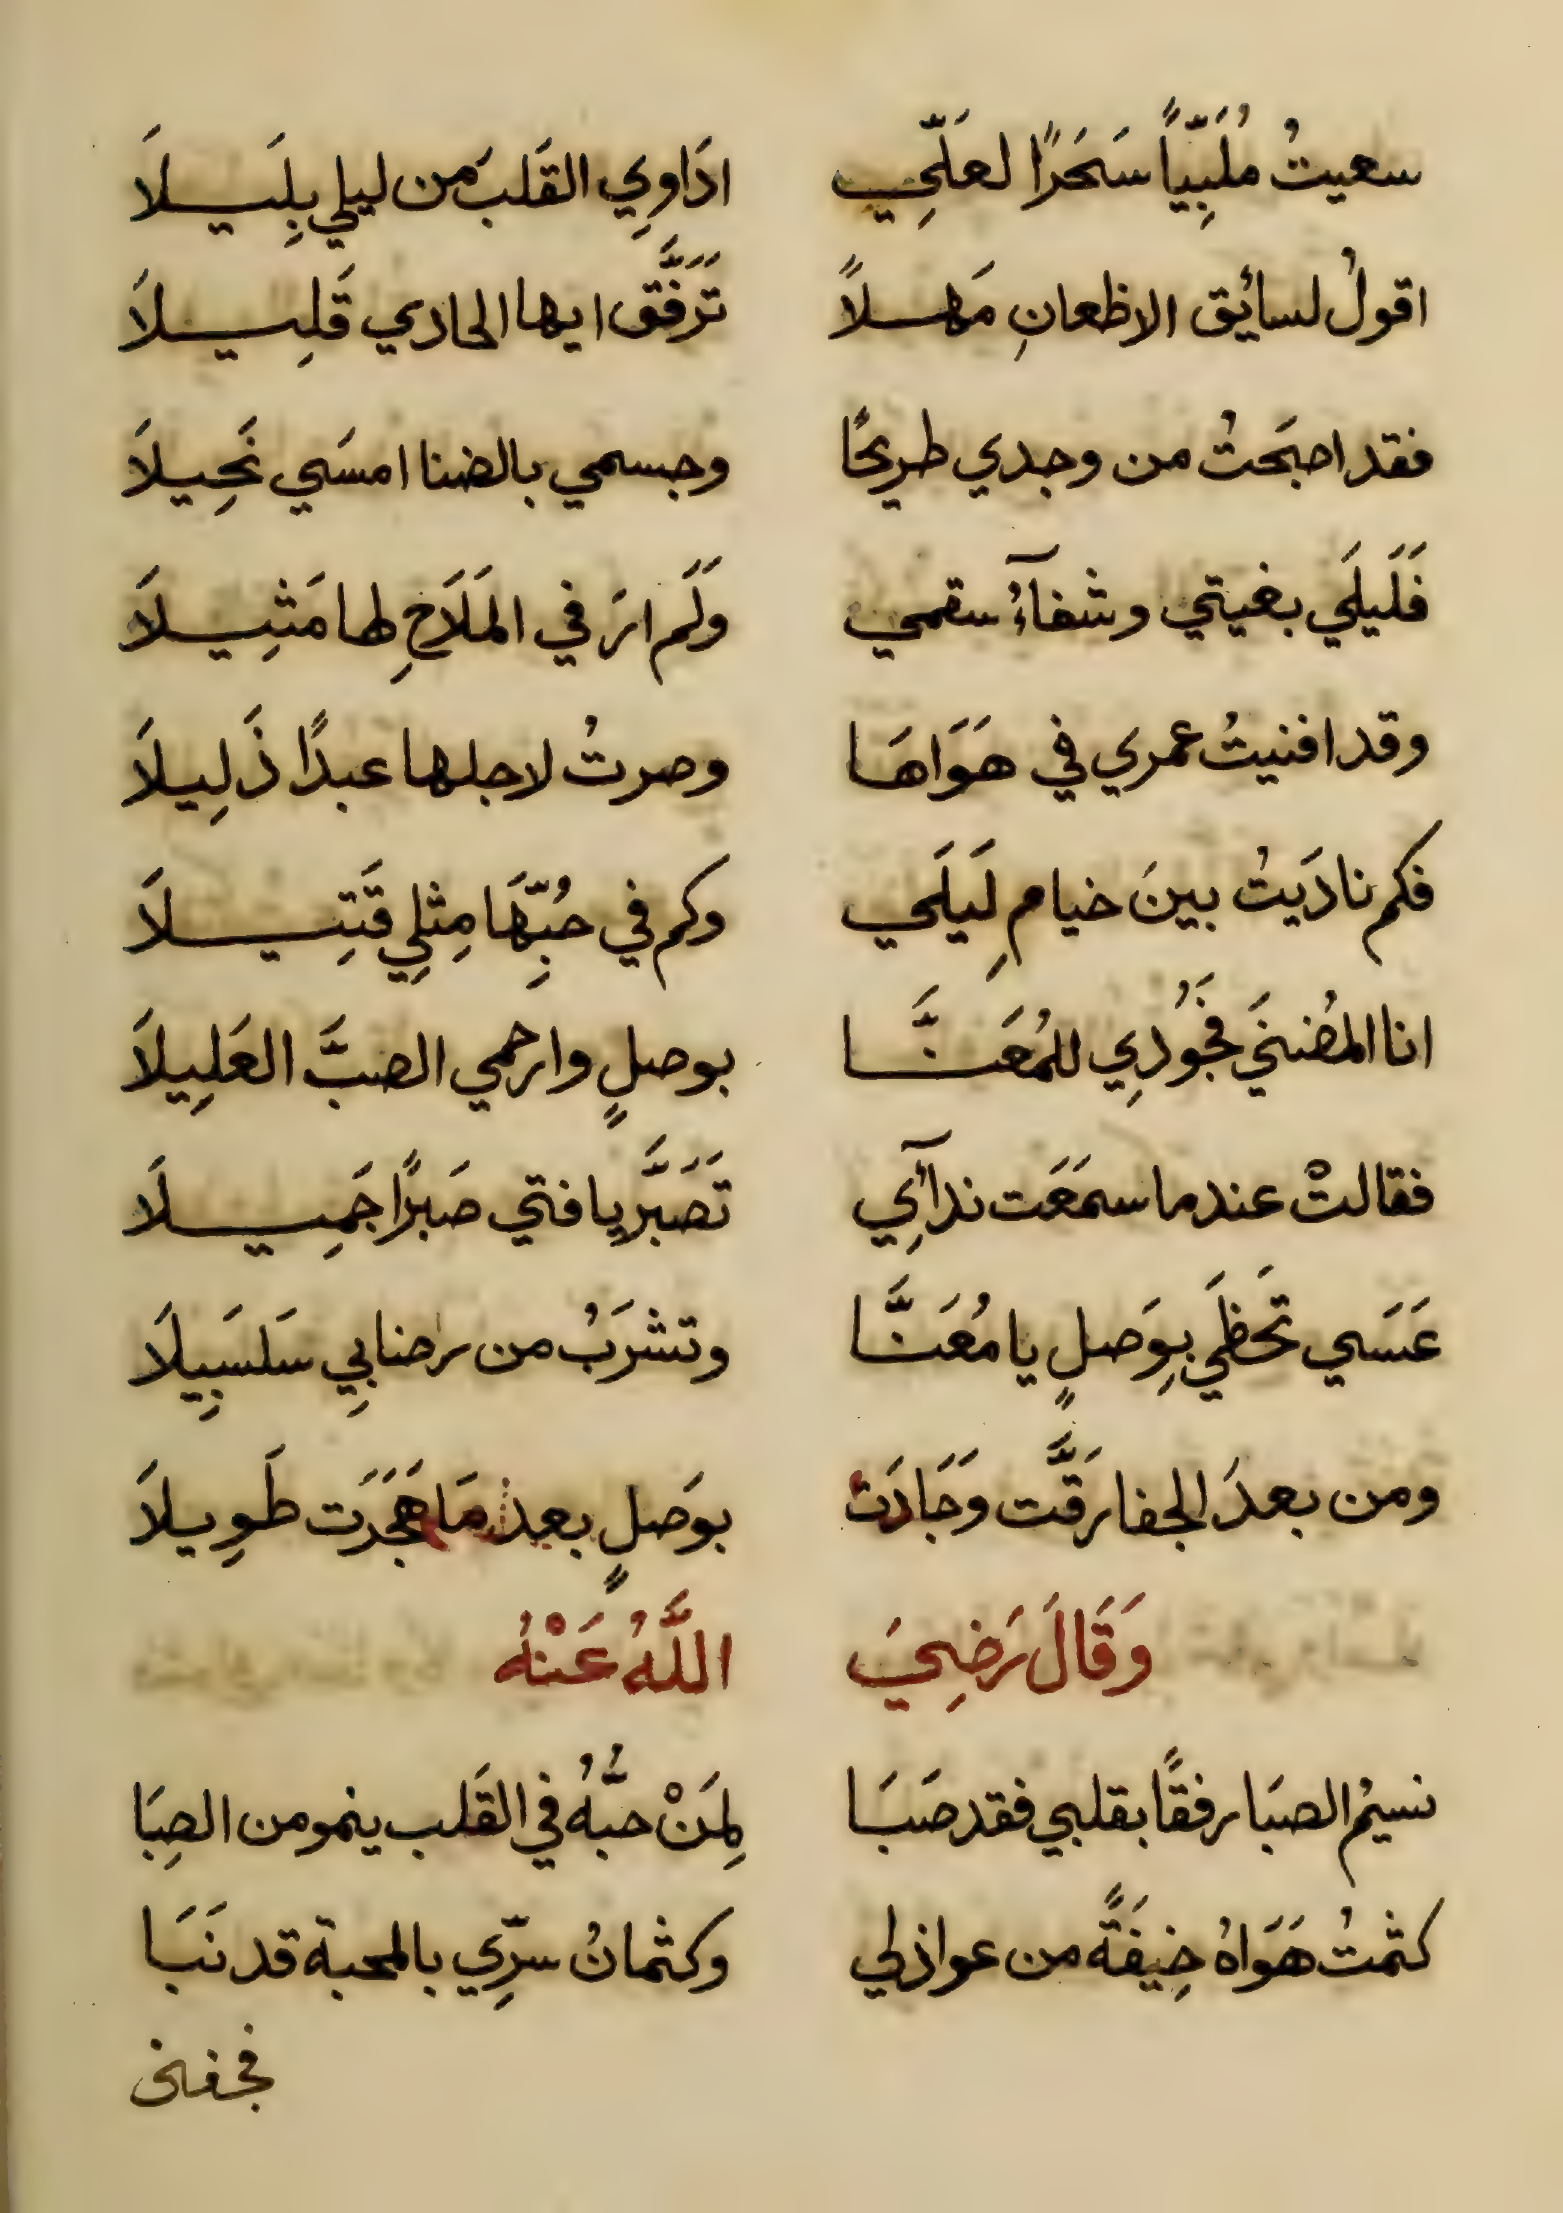 سعيتُ مُلَبِّيَاً سَحَرًا لعَلِّي ادَاوِي القَلبَ مَن ليلي بِلَيلاَ
اقولُ لسائِق الاظعانِ مَهلاً تَرَفَّق ايها الحادي قَلِيلاَ
فقد اصبَحتُ من وجدي طريحًا وجسمي بالضنا امسَي نَحِيلاَ
فَلَيلَي بغيتي وشفآءُ سقمي وَلَم ارَ في المَلَاحِ لها مَثِيلاَ
وقد افنيتُ عمري في هَوَاهَا وصرتُ لاجلها عبدًا ذَلِيلاَ
فكم نادَيتُ بينَ خيامِ لَيلَي وكم في حُبِّهَا مِثلِي قَتِيلاَ
انا المُضنَي فَجُودِي للمُعَنَّا بوصلٍ وارحمي الصبَّ العَلِيلاَ
فقالتْ عندما سمَعَت ندآئِي تَصَبَّر يا فتي صَبرًا جَمِيلَا
عَسَي تَحظَي بِوَصلٍ يا مُعَنَّا وتشرَبُ من رضابِي سَلسَبِيلَا
ومن بعدَ الجفا رَقَّت وَجَادَت بوَصلٍ بعد مَا هَجَرَت طَوِيلاَ
وَقَالَ رَضِيَ اللَّهُ عَنْهُ
نسيمُ الصبَا رفقًا بقلبي فقد صَبَا لِمَنْ حبُّهُ في القَلب ينمو من الصِبَا
كتمتُ هَوَاهُ خِيفَةً من عواذلي وكتمانُ سرِّي بالمحبة قد نَبَا
فجفني